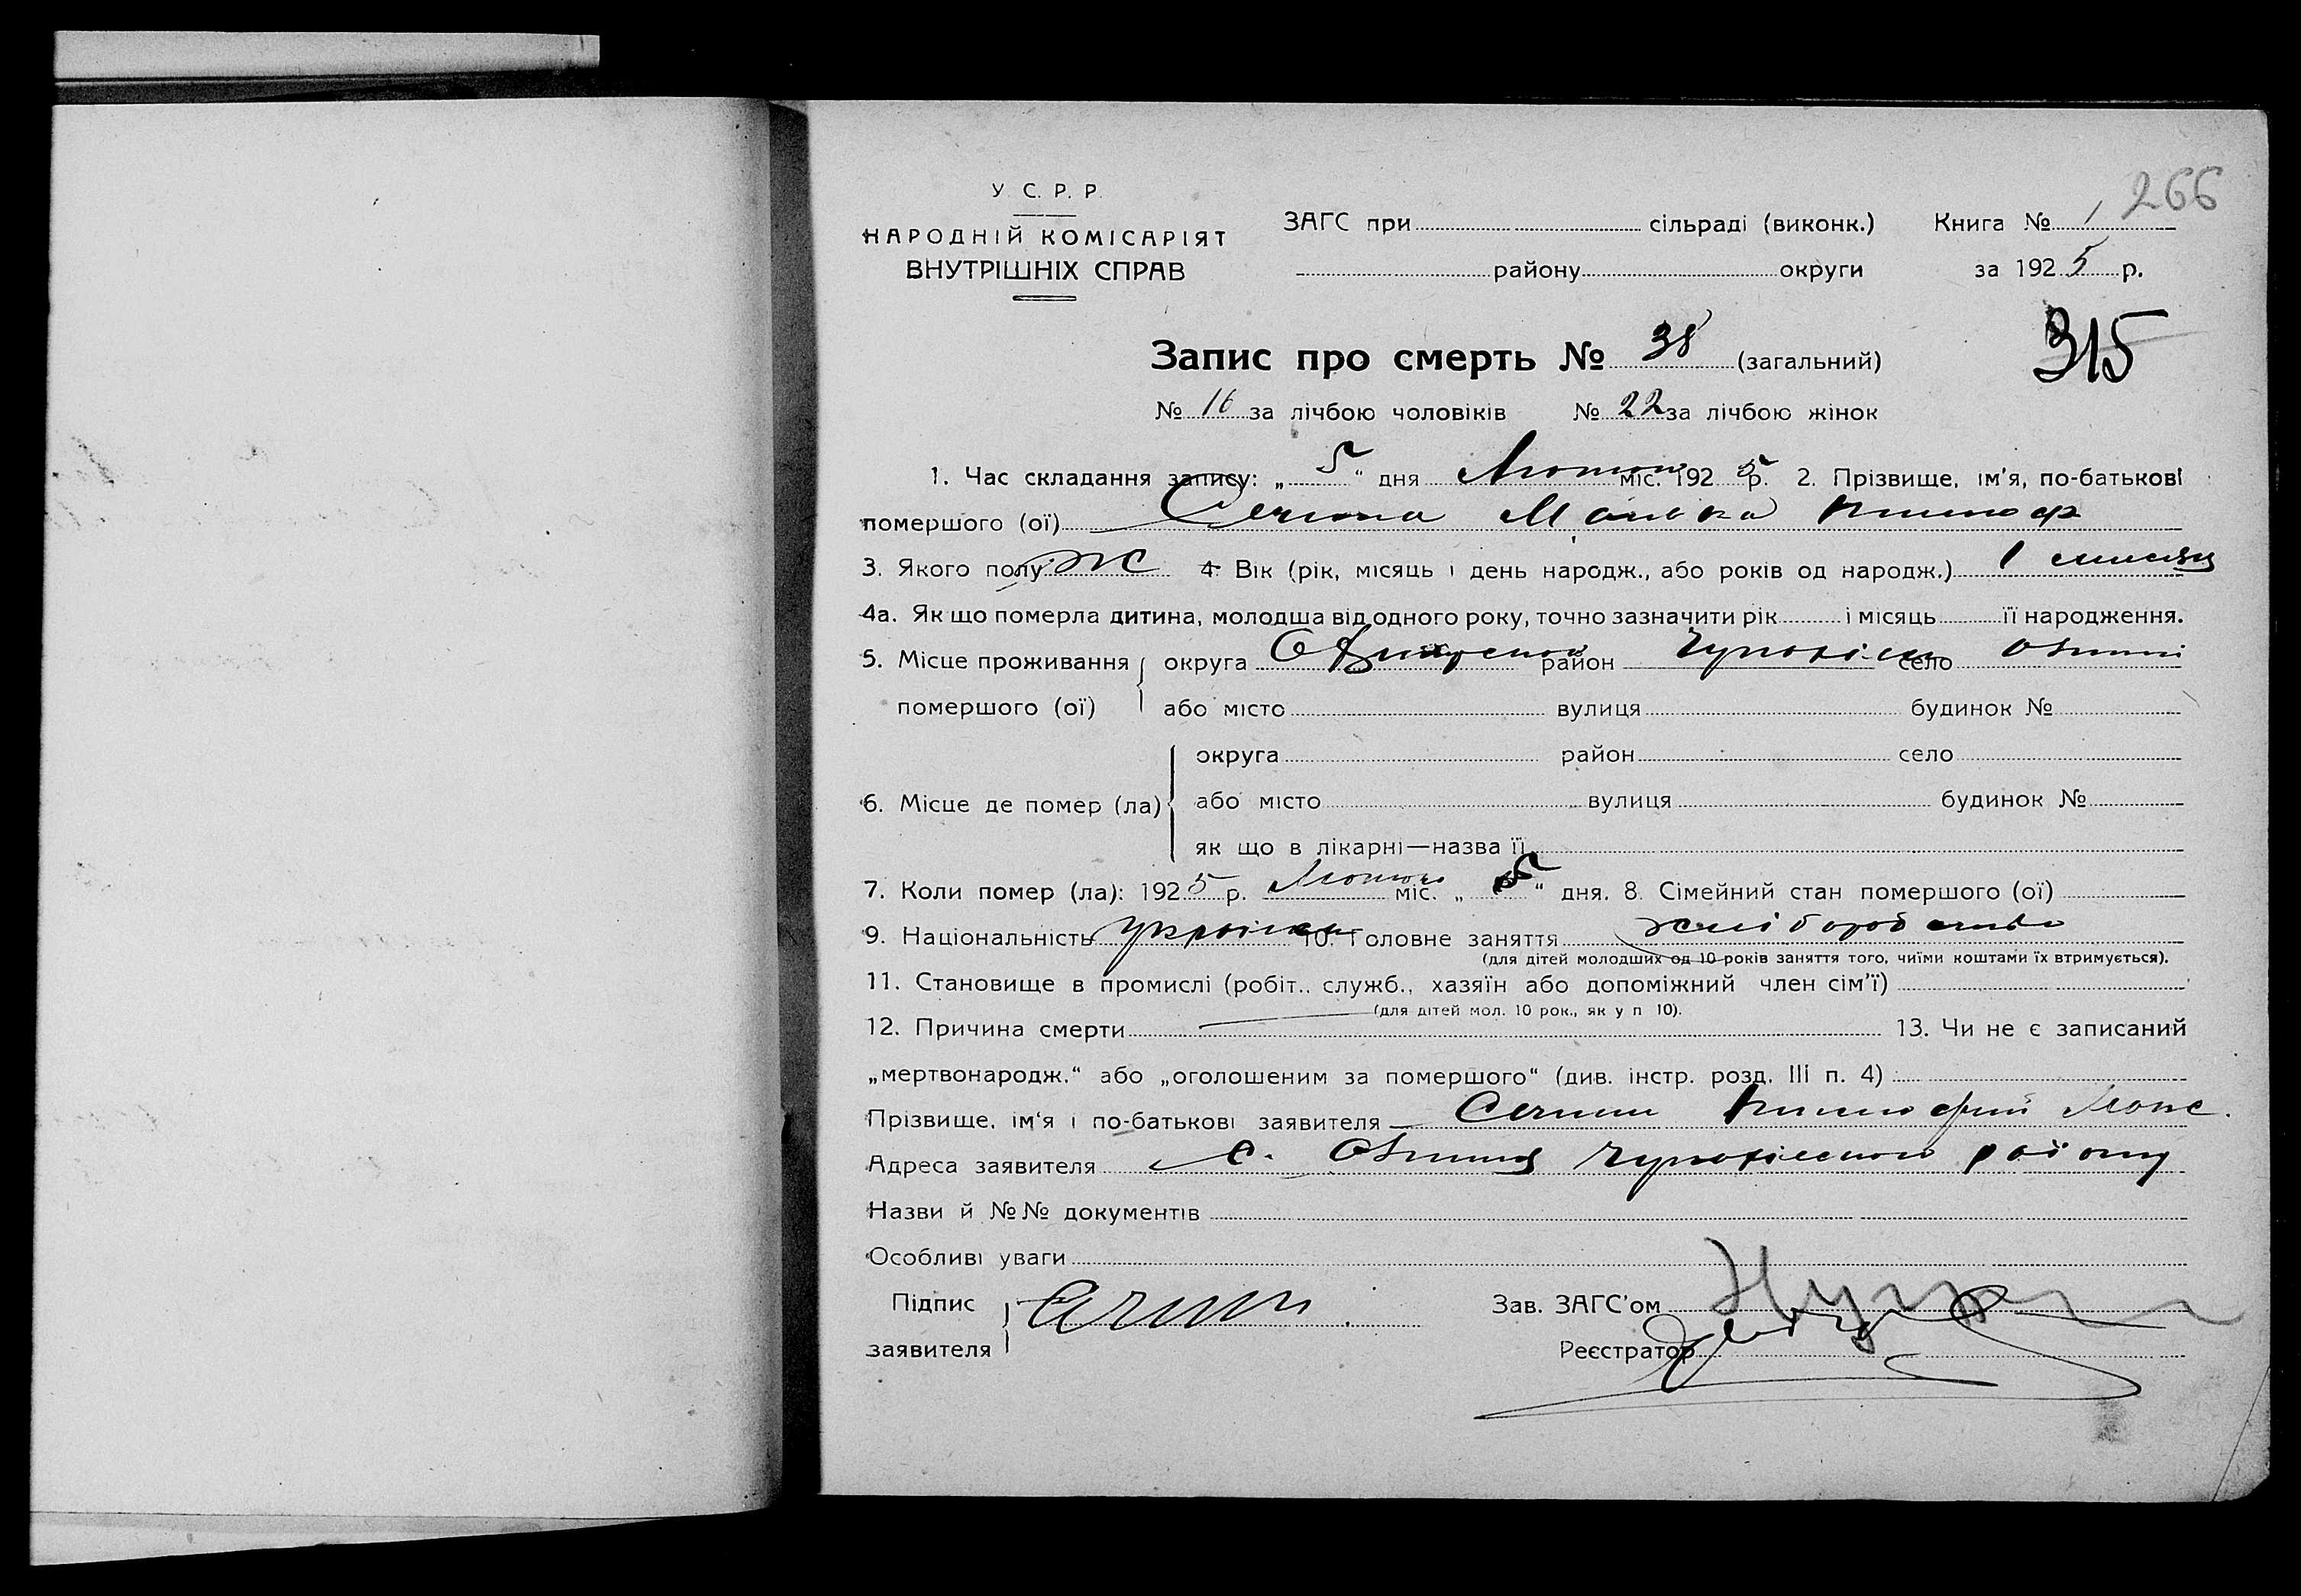 266
У. С. Р. Р.
НАРОДНІЙ КОМІСАРІЯТ
ВНУТРІШНІХ СПРАВ
ЗАГС при сільраді (виконк.) Книга № 1
району округи за 1925 р.
315
Запис про смерть № 38 (загальний)
№ 16 за лічбою чоловіків № 22 за лічбою жінок
1. Час складання запису: „5“ дня Лютого міс. 1925 р. 2. Прізвище, ім'я, по-батькові
помершого (ої)
3. Якого полу ж 4. Вік (рік, місяць і день народж., або років од народж.) 1 місяць
4а. Як що померла дитина, молодша від одного року, точно зазначити рік і місяць її народження.
5. Місце проживання округа район село
помершого (ої) або місто вулиця будинок №
округа район село
6. Місце де помер (ла) або місто вулиця будинок №
як що в лікарні—назва її
7. Коли помер (ла): 1925 р. Лютого міс. „5“ дня. 8. Сімейний стан помершого (ої)
9. Національність 10. Головне заняття хліборобство
(для дітей молодших од 10 років заняття того, чиїми коштами їх втримується).
11. Становище в промислі (робіт., служб., хазяїн або допоміжний член сім'ї)
(для дітей мол. 10 рок., як у п 10).
12. Причина смерти 13. Чи не є записаний
„мертвонародж.“ або „оголошеним за помершого“ (див. інстр. розд. III п. 4)
Прізвище, ім'я і по-батькові заявителя
Адреса заявителя с. району
Назви й №№ документів
Особливі уваги
Підпис Зав. ЗАГС'ом
заявителя Реєстратор